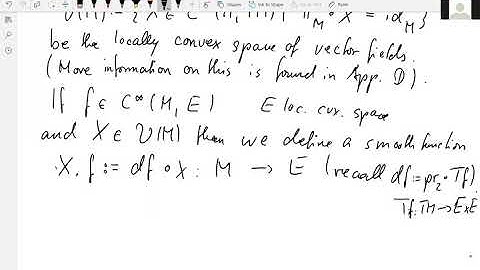 V(M) := { X ∈ C^∞(M, TM) | π_M ∘ X = id_M }
be the locally convex space of vector fields.
(More information on this is found in App. D).
If f ∈ C^∞(M, E) E loc. cur. space
and X ∈ V(M) then we define a smooth function
X.f := df ∘ X : M → E (recall df := pr_2 ∘ Tf)
Tf: TM → E×E